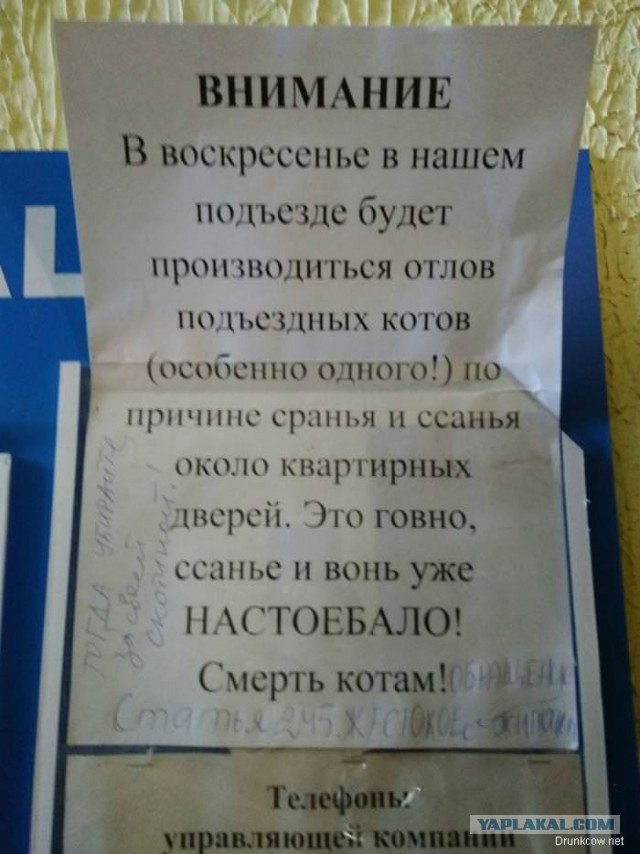 ВНИМАНИЕ
В воскресенье в нашем
подъезде будет
производиться отлов
подъездных котов
(особенно одного!) по
причине сранья и ссанья
около квартирных
дверей. Это говно,
ссанье и вонь уже
НАСТОЕБАЛО!
Смерть котам!
ТОГДА УБИРАЙТЕ
за своей
скотиной!
Статья 245. ЖЕСТОКОЕ
ОБРАЩЕНИЕ
Телефоны
управляющей компании
YAPLAKAL.COM
Drunkcow.net